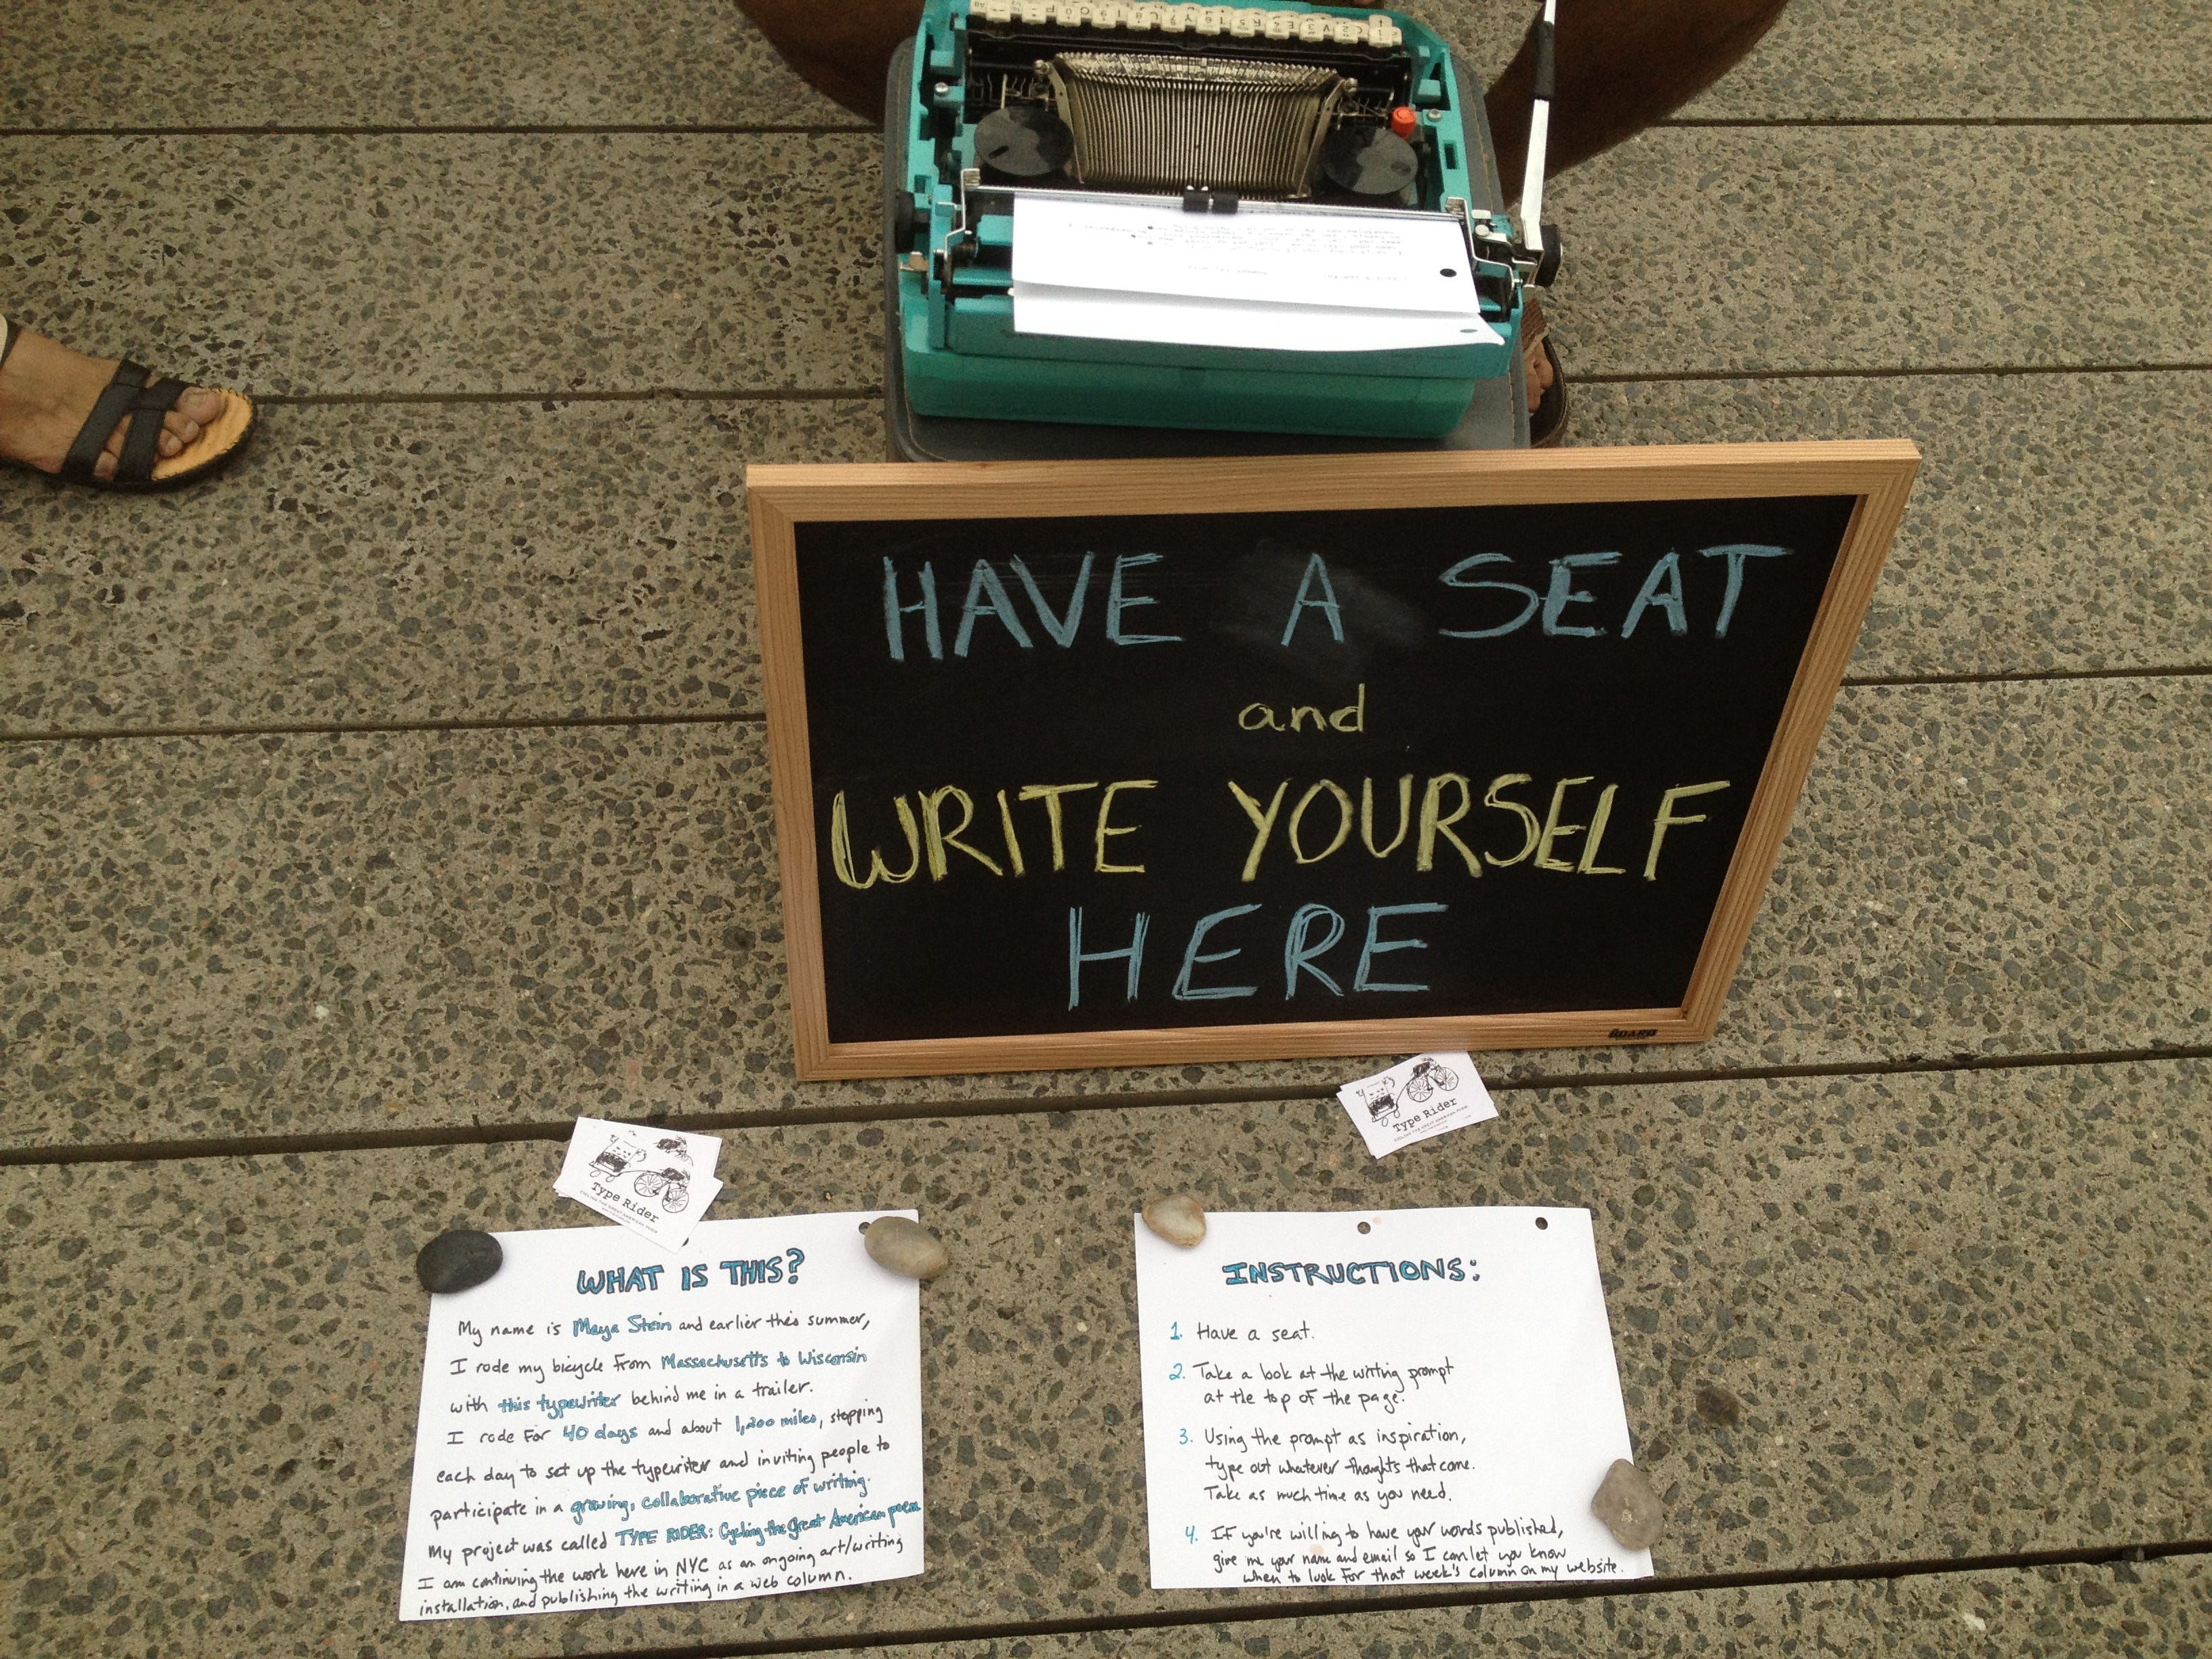 HAVE A SEAT
and
WRITE YOURSELF
HERE
Type Rider
CYCLING THE GREAT AMERICAN POEM
Type Rider
CYCLING THE GREAT AMERICAN POEM
WHAT IS THIS?
My name is Maya Stein and earlier this summer,
I rode my bicycle from Massachusetts to Wisconsin
with this typewriter behind me in a trailer.
I rode for 40 days and about 1,200 miles, stopping
each day to set up the typewriter and inviting people to
participate in a growing, collaborative piece of writing.
My project was called TYPE RIDER: Cycling the Great American poem
I am continuing the work here in NYC as an ongoing art/writing
installation, and publishing the writing in a web column.
INSTRUCTIONS:
1. Have a seat.
2. Take a look at the writing prompt
at the top of the page.
3. Using the prompt as inspiration,
type out whatever thoughts that come.
Take as much time as you need.
4. If you're willing to have your words published,
give me your name and email so I can let you know
when to look for that week's column on my website.